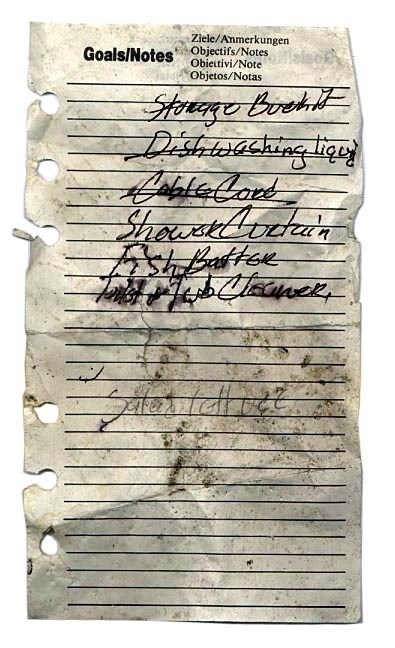 Goals/Notes
Ziele/Anmerkungen
Objectifs/Notes
Obiettivi/Note
Objetos/Notas
Storage Bucket
Dishwashing liquid
Cable Cord
Shower Curtain
Fish Batter
Tub Cleaner,
Salad lettuce